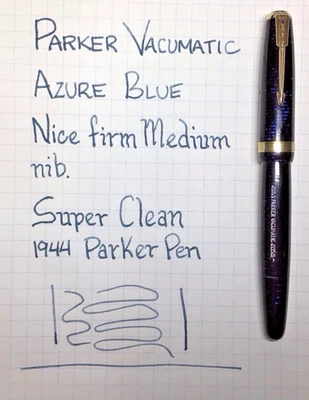 PARKER VACUMATIC
AZURE BLUE
Nice firm Medium
nib.
Super Clean
1944 Parker Pen
PARKER VACUMATIC